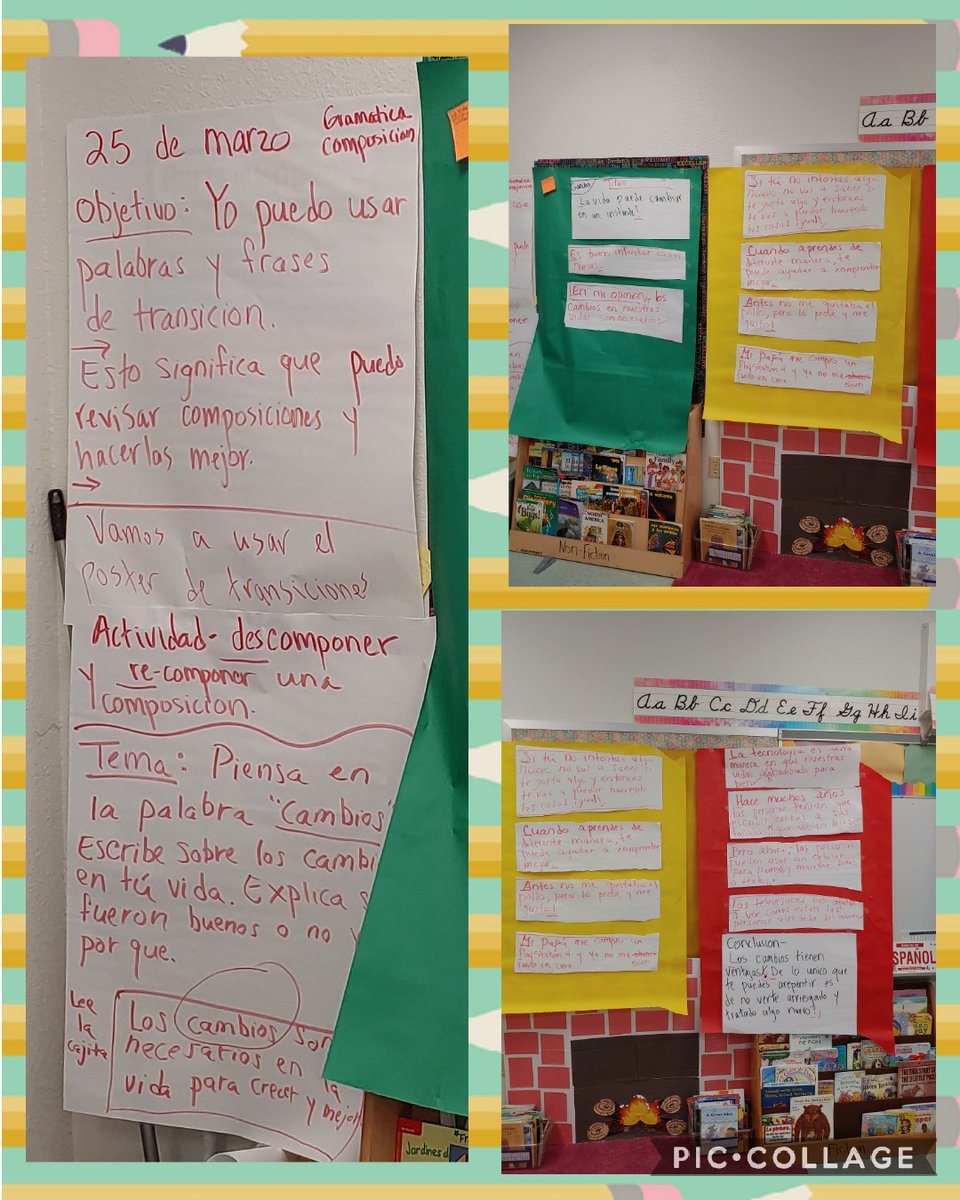 25 de marzo
Gramatica
composicion
Objetivo: Yo puedo usar
palabras y frases
de transicion.
Esto significa que puedo
revisar composiciones y
hacerlas mejor.
Vamos a usar el
poster de transiciones
Actividad- descomponer
y re-componer una
composicion.
Tema: Piensa en
la palabra "Cambios"
Escribe sobre los cambi
en tú vida. Explica s
fueron buenos o no y
por que.
Lee
la
cajita
Los cambios son
necesarios en la
vida para crecer y mejor
Jardines d
Aa Bb
Titulo
La vida puede cambiar
en un instante!
Es bueno intentar cosas
nuevas.
En mi opinion, los
cambios en nuestras
vidas son necesarios.
Si tú no intentas algo
nuevo no vas a saber si
te gusta algo y entonces
te vas a quedar haciendo
las cosas igual.
Cuando aprendes de
diferente manera, te
puede ayudar a comprender
mejor.
Antes no me gustaba el
pollo, pero lo probe y me
gusto!
Mi Papá me compro un
Playstation 4 y Yo no me
siento en casa
Family
NORTH
AMERICA
Non-Fiction
Aa Bb Cc Dd Ee Ff Gg Hh Ii
Si tú no intentas algo
nuevo no vas a saber si
te gusta algo y entonces
te vas a quedar haciendo
las cosas igual.
Cuando aprendes de
diferente manera, te
puede ayudar a comprender
mejor.
Antes no me gustaba el
pollo, pero lo probe y me
gusto!
Mi Papá me compro un
Playstation 4 y Yo no me
siento en casa
La tecnologia es una
manera en que nuestras
vidas
Hace muchos años
las personas tenian que
escribir cartas a sus
familias que vivian lejos.
Pero ahora, las personas
pueden usar un celular
para llamar y mandar fotos
o textos.
Los televisores nos
a ver como estan las
personas alrededor del mundo
Conclusion-
Los cambios tienen
ventajas! De lo unico que
te puedes arepentir es
de no verte arriesgado y
tratado algo nuevo!
ESPAÑOL
THE TRUE STORY OF
THE 3 LITTLE PIGS
PIC•COLLAGE